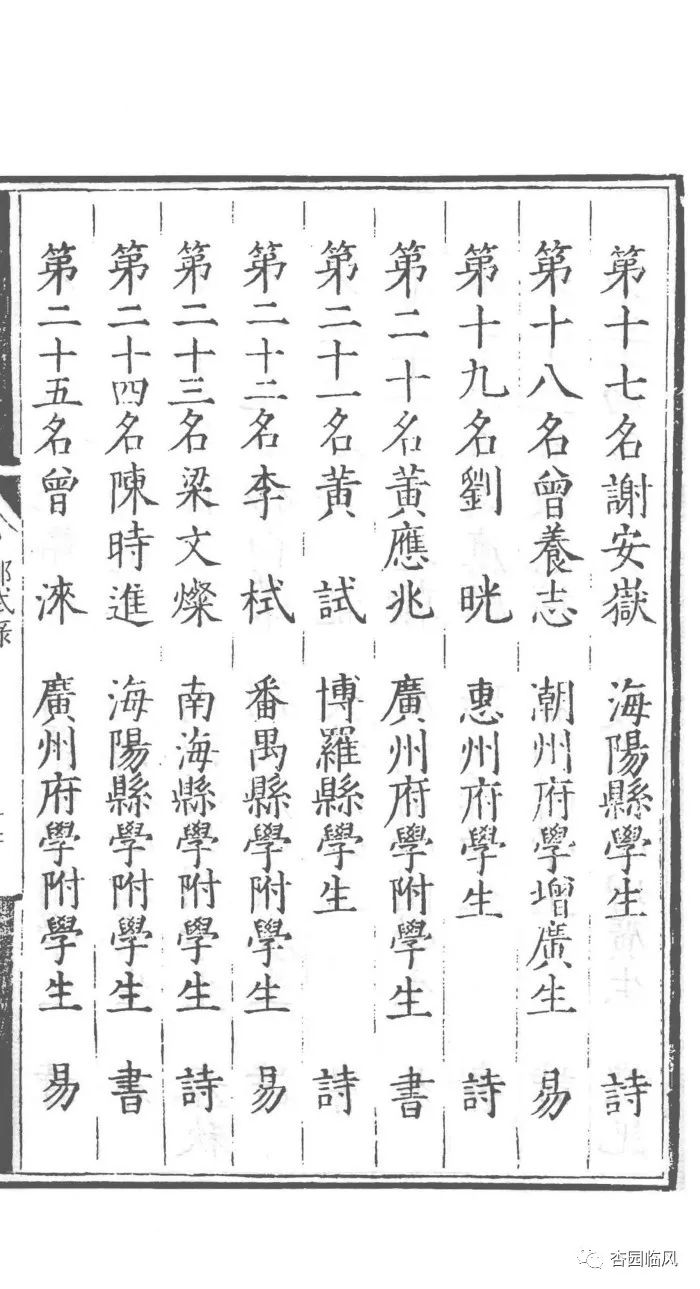 第十七名謝安嶽 海陽縣學生 詩
第十八名曾養志 潮州府學增廣生 易
第十九名劉 晄 惠州府學生 詩
第二十名黃應兆 廣州府學附學生 書
第二十一名黃 試 博羅縣學生 詩
第二十二名李 栻 番禺縣學附學生 易
第二十三名梁文燦 南海縣學附學生 詩
第二十四名陳時進 海陽縣學附學生 書
第二十五名曾 淶 廣州府學附學生 易
試錄
杏园临风